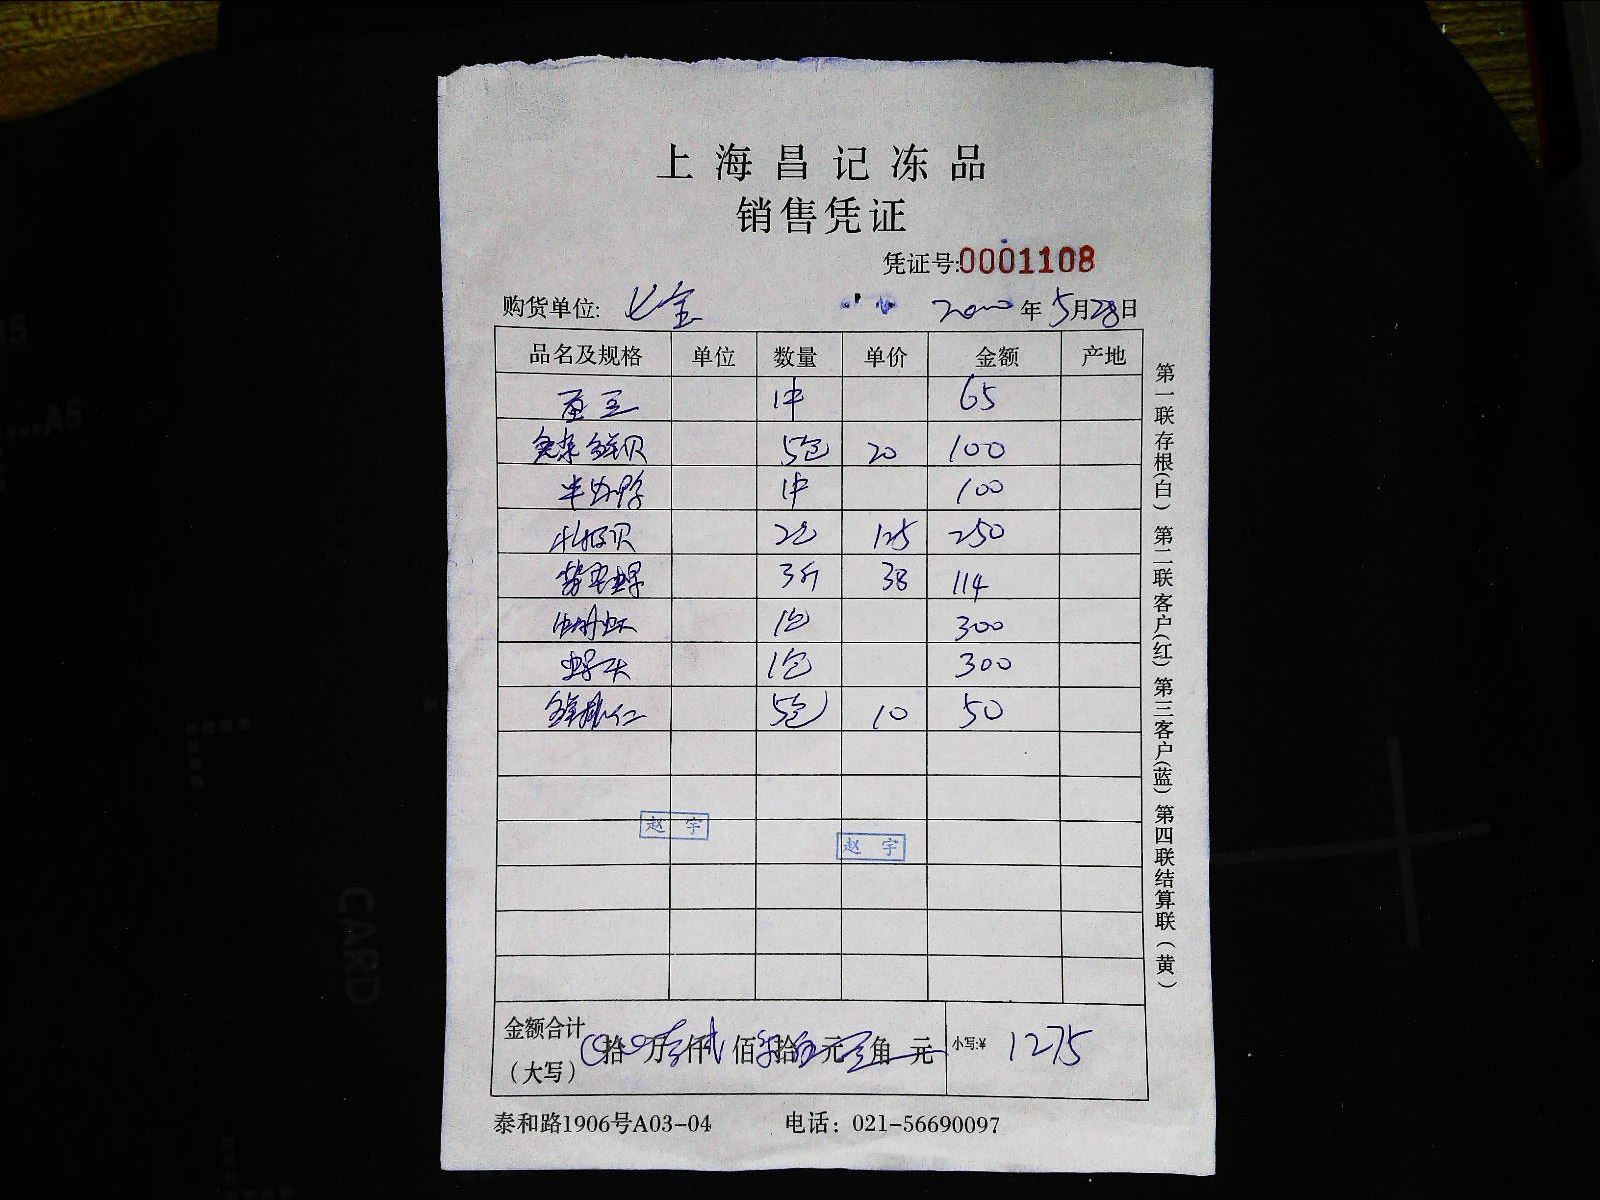 上海昌记冻品
销售凭证
凭证号:0001108
购货单位: 七宝 年5月28日
品名及规格 单位 数量 单价 金额 产地
1件 65
鲜贝 5包 20 100
半边 1件 100
贝 2包 125 250
3斤 38 114
1包 300
螺头 1包 300
鲜桃仁 5包 10 50
赵 宇
赵 宇
金额合计
(大写) 拾 万 仟 佰 拾 元 角 元 小写:¥ 1275
泰和路1906号A03-04 电话：021-56690097
第一联存根(白) 第二联客户(红) 第三客户(蓝) 第四联结算联(黄)
CARD
A5